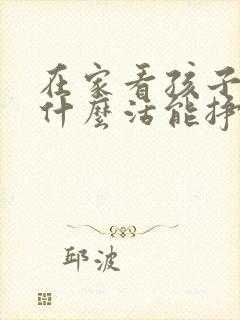 在家看孩子
什麼活能掙
邱波